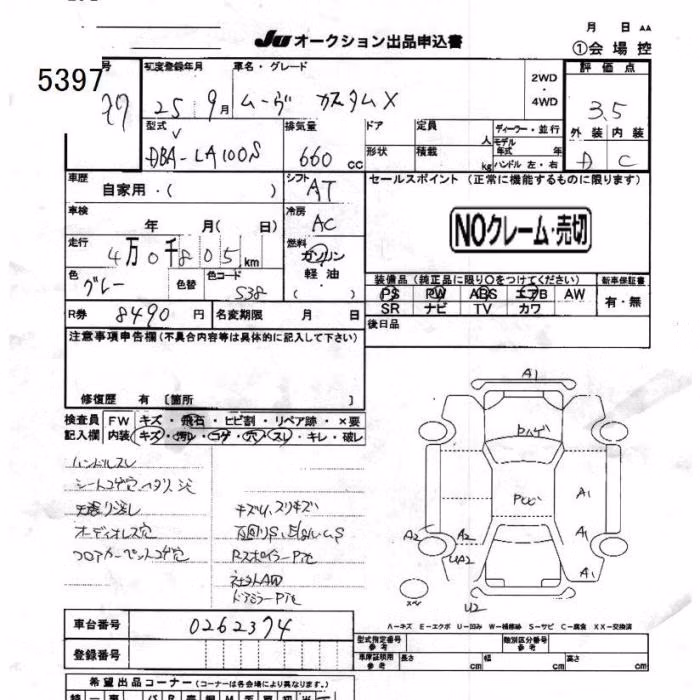 月 日 AA
JU オークション出品申込書
①会場控
5397
号
初度登録年月
車名・グレード
2WD
・
4WD
評価点
25 9月
ムーヴ カスタムX
3.5
型式
排気量
ドア
定員
人
ディーラー・並行
モデル
年式 年
外装 内装
DBA-LA100S
660 cc
形状
積載
kg
ハンドル 左・右
D C
車歴
自家用・( )
シフト
AT
セールスポイント (正常に機能するものに限ります)
車検
年 月( 日)
冷房
AC
NOクレーム・売切
走行
4万0千805km
燃料
ガソリン
軽油
( )
色
グレー
色替
色コード
S38
装備品 (純正品に限り○をつけてください)
新車保証書
PS PW ABS エアB AW
SR ナビ TV カワ
有・無
R券 8490円
名変期限 月 日
後日品
注意事項申告欄 (不具合内容等は具体的に記入して下さい)
修復歴 有 [箇所 ]
検査員
記入欄
FW キズ・飛石・ヒビ割・リペア跡・×要
内装 キズ・汚レ・コゲ・穴・スレ・キレ・破レ
ハンドルスレ
シートコゲ穴
天張り
キズ小、スリキズ
オーディオレス穴
フロアカーペットコゲ穴
Rスポイラー
社外AW
ドアミラー
A1
A1
A1
A1
A2
A2
UA2
U2
車台番号 0262374
登録番号
A－キズ E－エクボ U－凹み W－補修跡 S－サビ C－腐食 XX－交換済
型式指定番号
参考
類別区分番号
参考
車庫証明用
参考
長さ cm
幅 cm
高さ cm
希望出品コーナー (コーナーは各会場により異なります。)